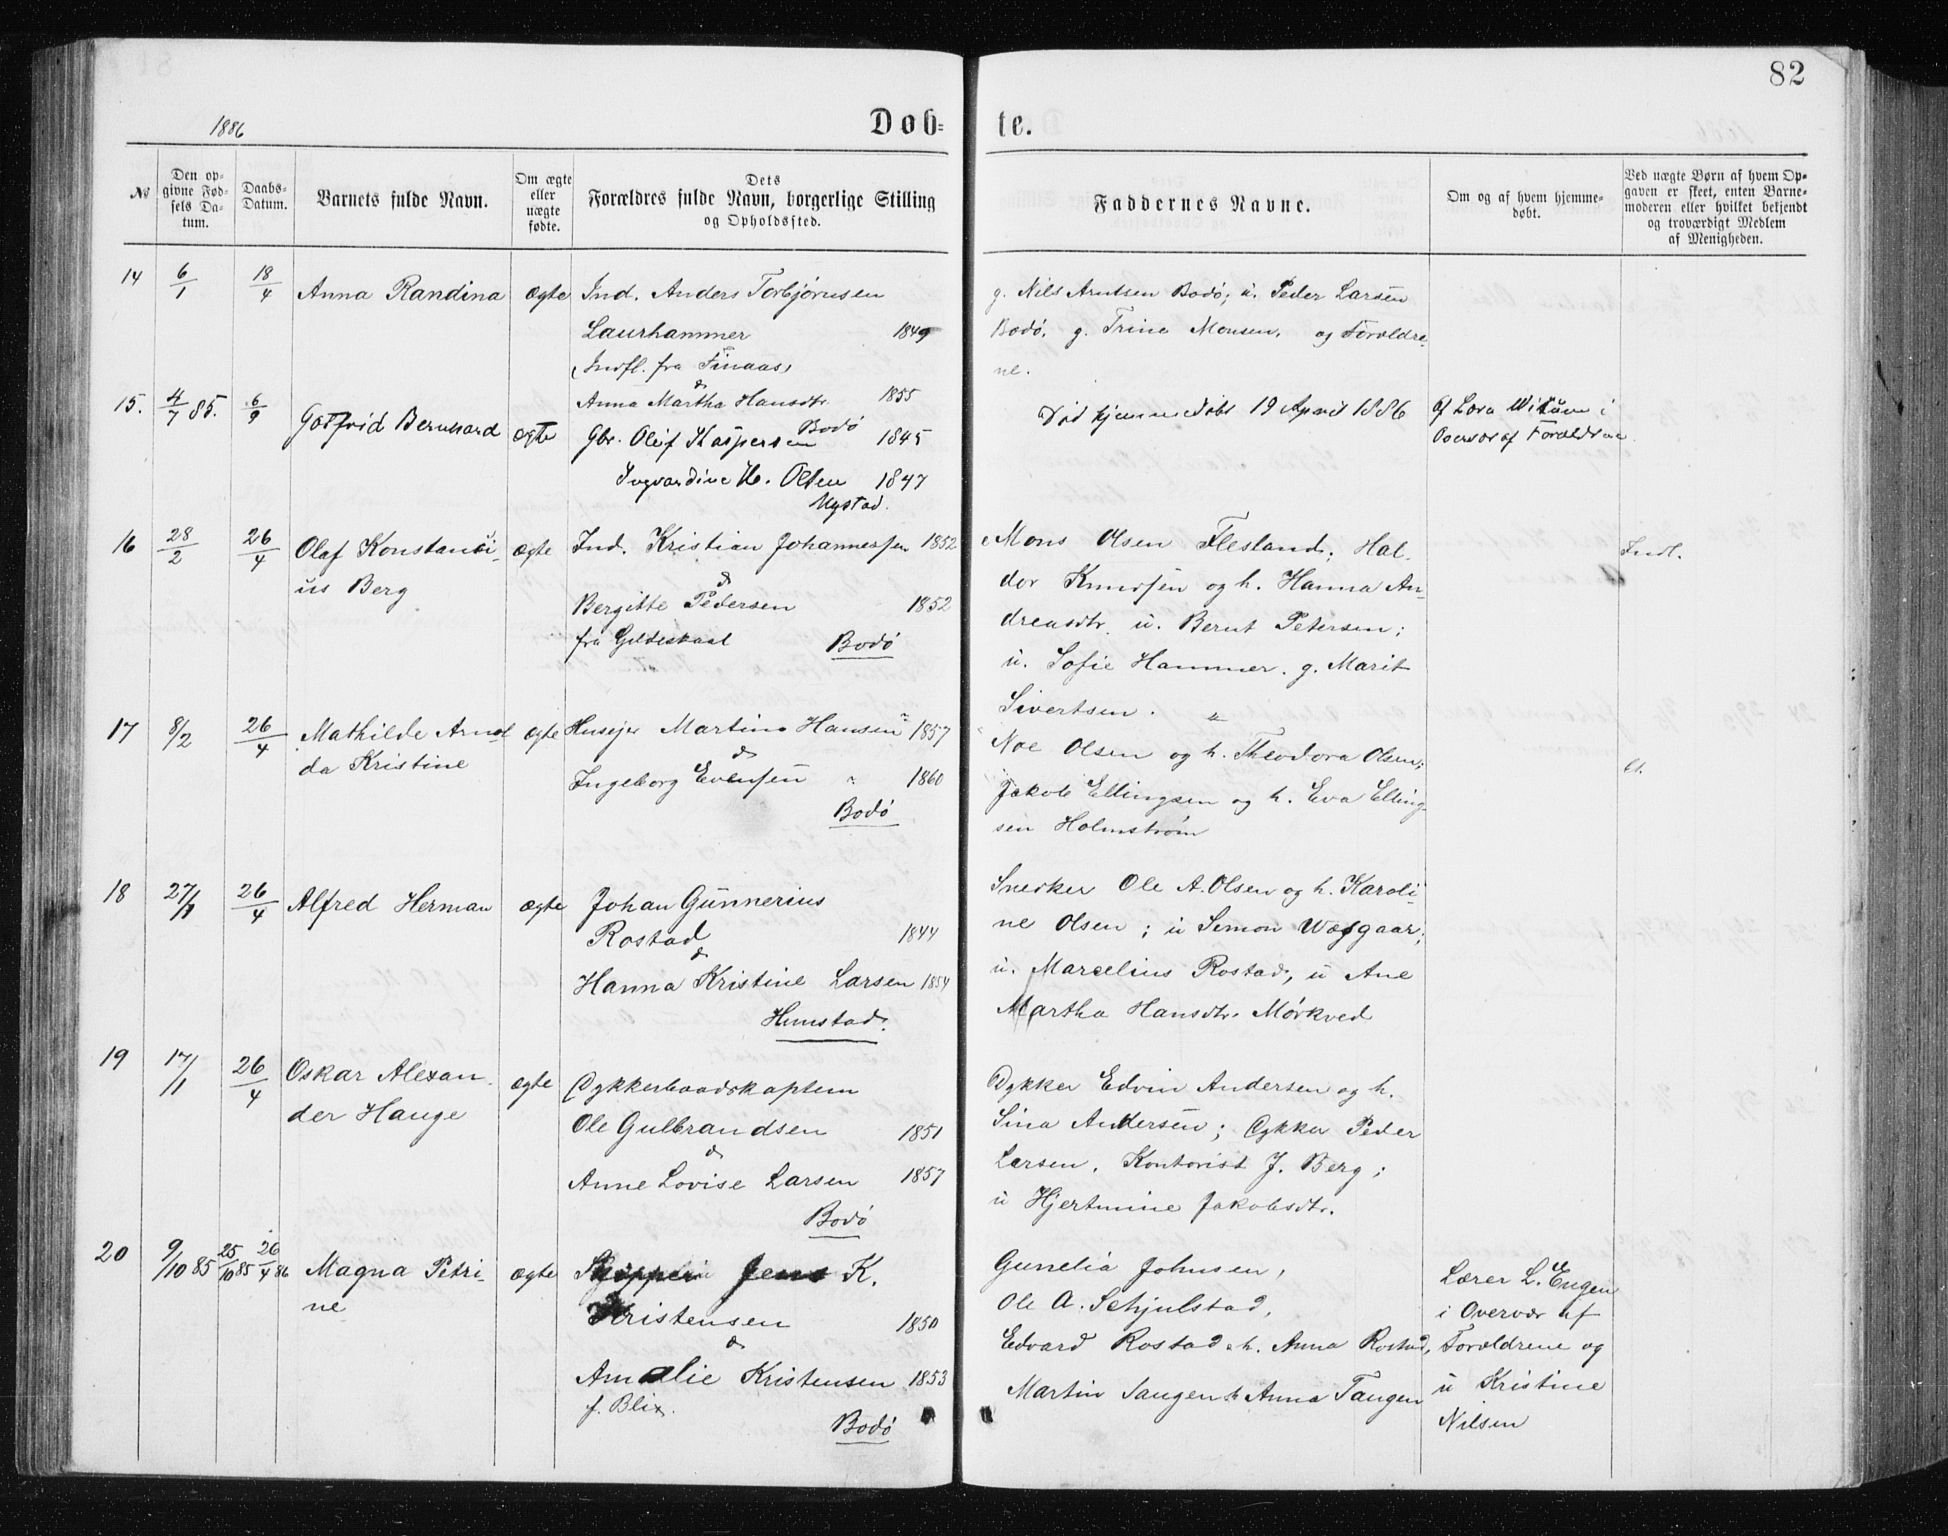 82
1886
Døb- te.
No
Den opgivne Fødsels Datum.
Daabs-Datum.
Barnets fulde Navn.
Om ægte eller uægte fødte.
Dets Forældres fulde Navn, borgerlige Stilling og Opholdssted.
Faddernes Navne.
Om og af hvem hjemmedøbt.
Ved uægte Børn af hvem Opgaven er skeet, enten Barnemoderen eller hvilket bekjendt og troværdigt Medlem af Menigheden.
14 6/1 18/4 Anna Randina ægte Ind. Anders Torbjørnsen
Laurhammer 1849
(Indfl. fra Finaas)
&
Anna Martha Hansdtr 1855
Bodø
g. Nils Arntsen Bodø; u. Peder Larsen
Bodø. g. Trine Monsen. og Forældre-
ne.
15. 4/7 85. 6/9 Gotfrid Bernhard ægte Gbr. Olef Kaspersen 1845
Ingvardine H. Olsen 1847
Nystad.
Død hjemmedøbt 19 April 1886
Af Lora i
Overvær af Forældrene
16 28/2 26/4 Olaf Konstanti-
us Berg
ægte Ind. Kristian Johannessen 1852
&
Bergitte Pedersen 1852
fra Gildeskaal Bodø
Mons Olsen Flesland; Hal-
dor Knudsen og h. Hanna An-
dreasdtr. u. Bernt Petersen;
u. Sofie Hammer. g. Marit
Sivertsen.
Indl.
17 8/2 26/4 Mathilde Arnol-
da Kristine
ægte Husejer Martin Hansen 1857
&
Ingeborg Evensen " 1860
Bodø
Noe Olsen og h. Theodora Olsen;
Jakob Ellingsen og h. Eva Elling-
sen Holmstrøm
18 27/1 26/4 Alfred Herman ægte Johan Gunnerius
Rostad 1844
&
Hanna Kristine Larsen 1854
Hunstad.
Snedker Ole A. Olsen og h. Karoli-
ne Olsen; u Simon Wågaar;
u. Marcelius Rostad; u Ane
Martha Hansdtr. Mørkved
19 17/1 26/4 Oskar Alexan-
der Hauge
ægte Dykkerbaadskaptein
Ole Gulbrandsen 1851
&
Anne Lovise Larsen 1857
Bodø
Dykker Edvin Andersen og h.
Sina Andersen; Dykker Peder
Larsen, Kontorist J. Berg;
u Hjertmine Jakobsdtr.
20 9/10 85 25/10 85 26/4 86 Magna Petri-
ne
ægte Skipper Jens K.
Kristensen 1850
&
Amalie Kristensen 1853
f. Blix.
Bodø
Gunelia Johnsen,
Ole A. Schjulstad,
Edvard Rostad & h. Anna Rostad,
Martin Tangen & Anna Tangen
Lærer L. Engen
i Overvær af
Forældrene og
u Kristine
Nilsen